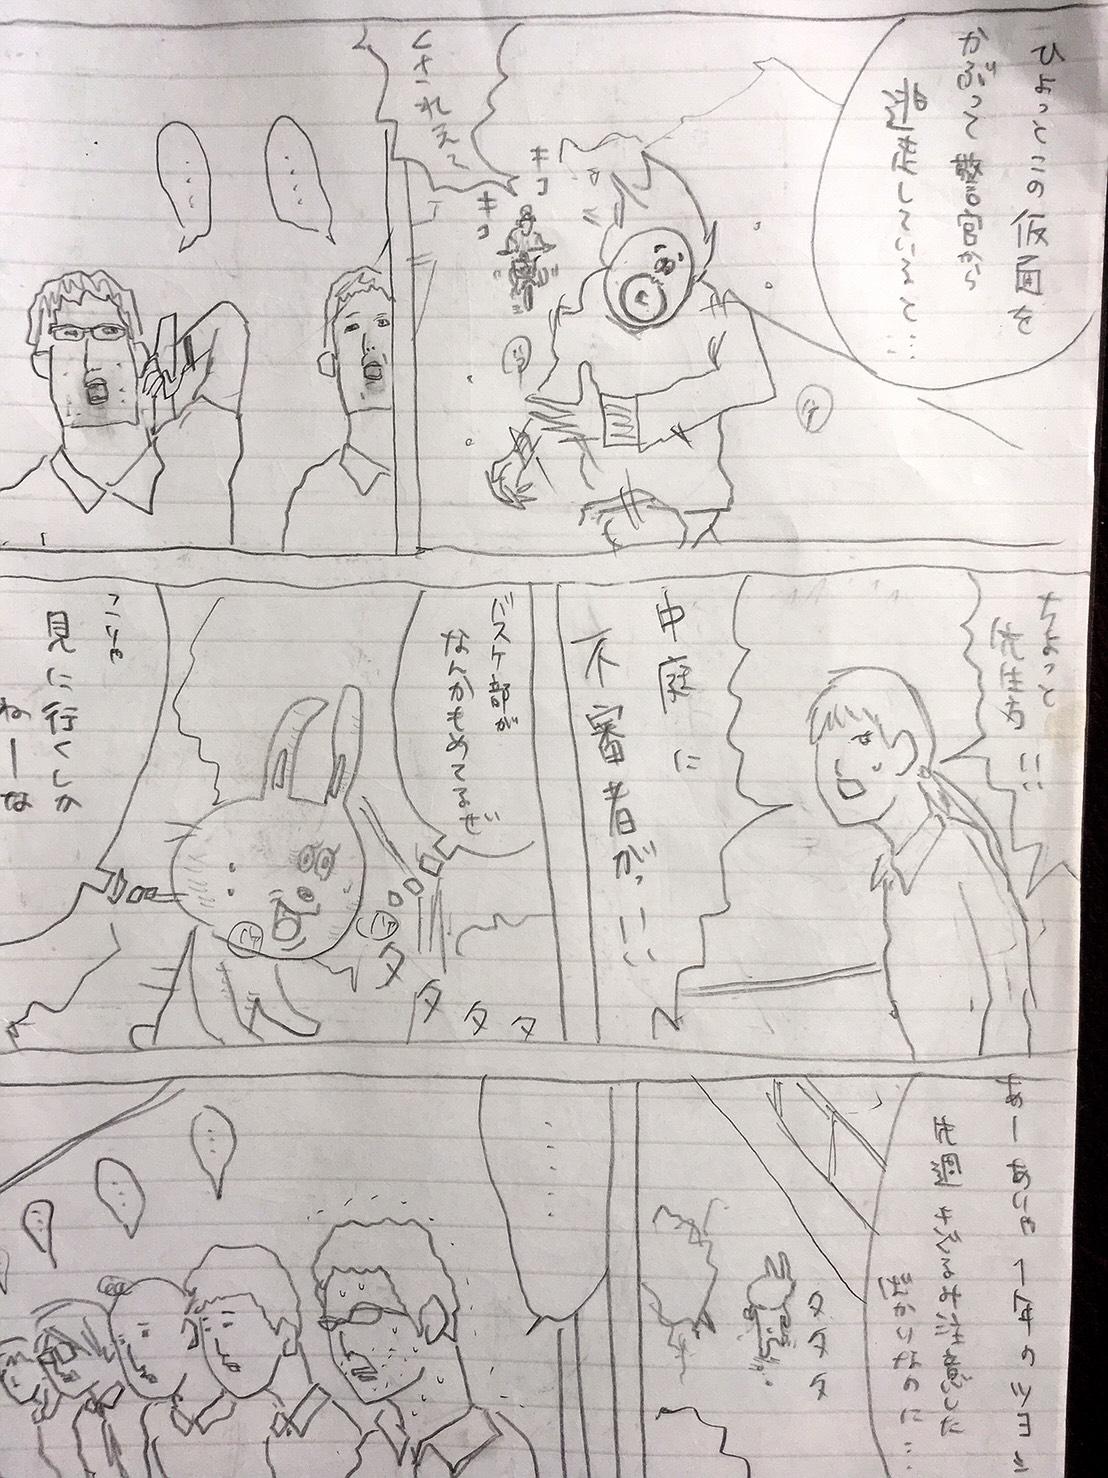 ひょっとこの仮面を
かぶって警官から
逃走していると…
キコ
キコ
……
……
ちょっと
先生方!!
中庭に
不審者がっ!!
バスケ部が
なんかもめてるぜ
タタタタ
こりゃ
見に行くしか
ねーな
あー 1年のツヨシ
先週 注意した
ばかりなのに…
タタタ
……
…
…
…